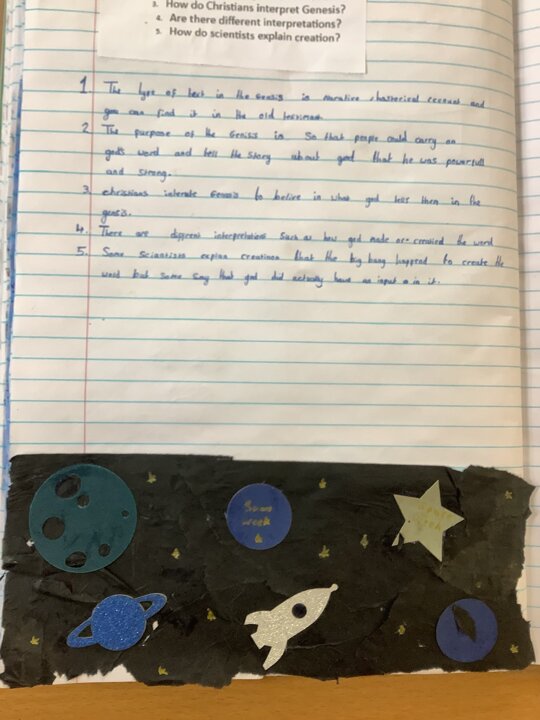 3. How do Christians interpret Genesis?
4. Are there different interpretations?
5. How do scientists explain creation?
1. The type of text in the Genesis is narrative historical account and
you can find it in the old
2. The purpose of the Genisis is So that people could carry on
gods word and tell the story about god that he was powerfull
and strong.
3. christians Genesis to belive in what god tells them in the
genesis.
4. There are different interpretations such as how god made or created the word
5. Some scientists explan creation that the big bang happend to create the
word but some say that god did actually have an input in it.